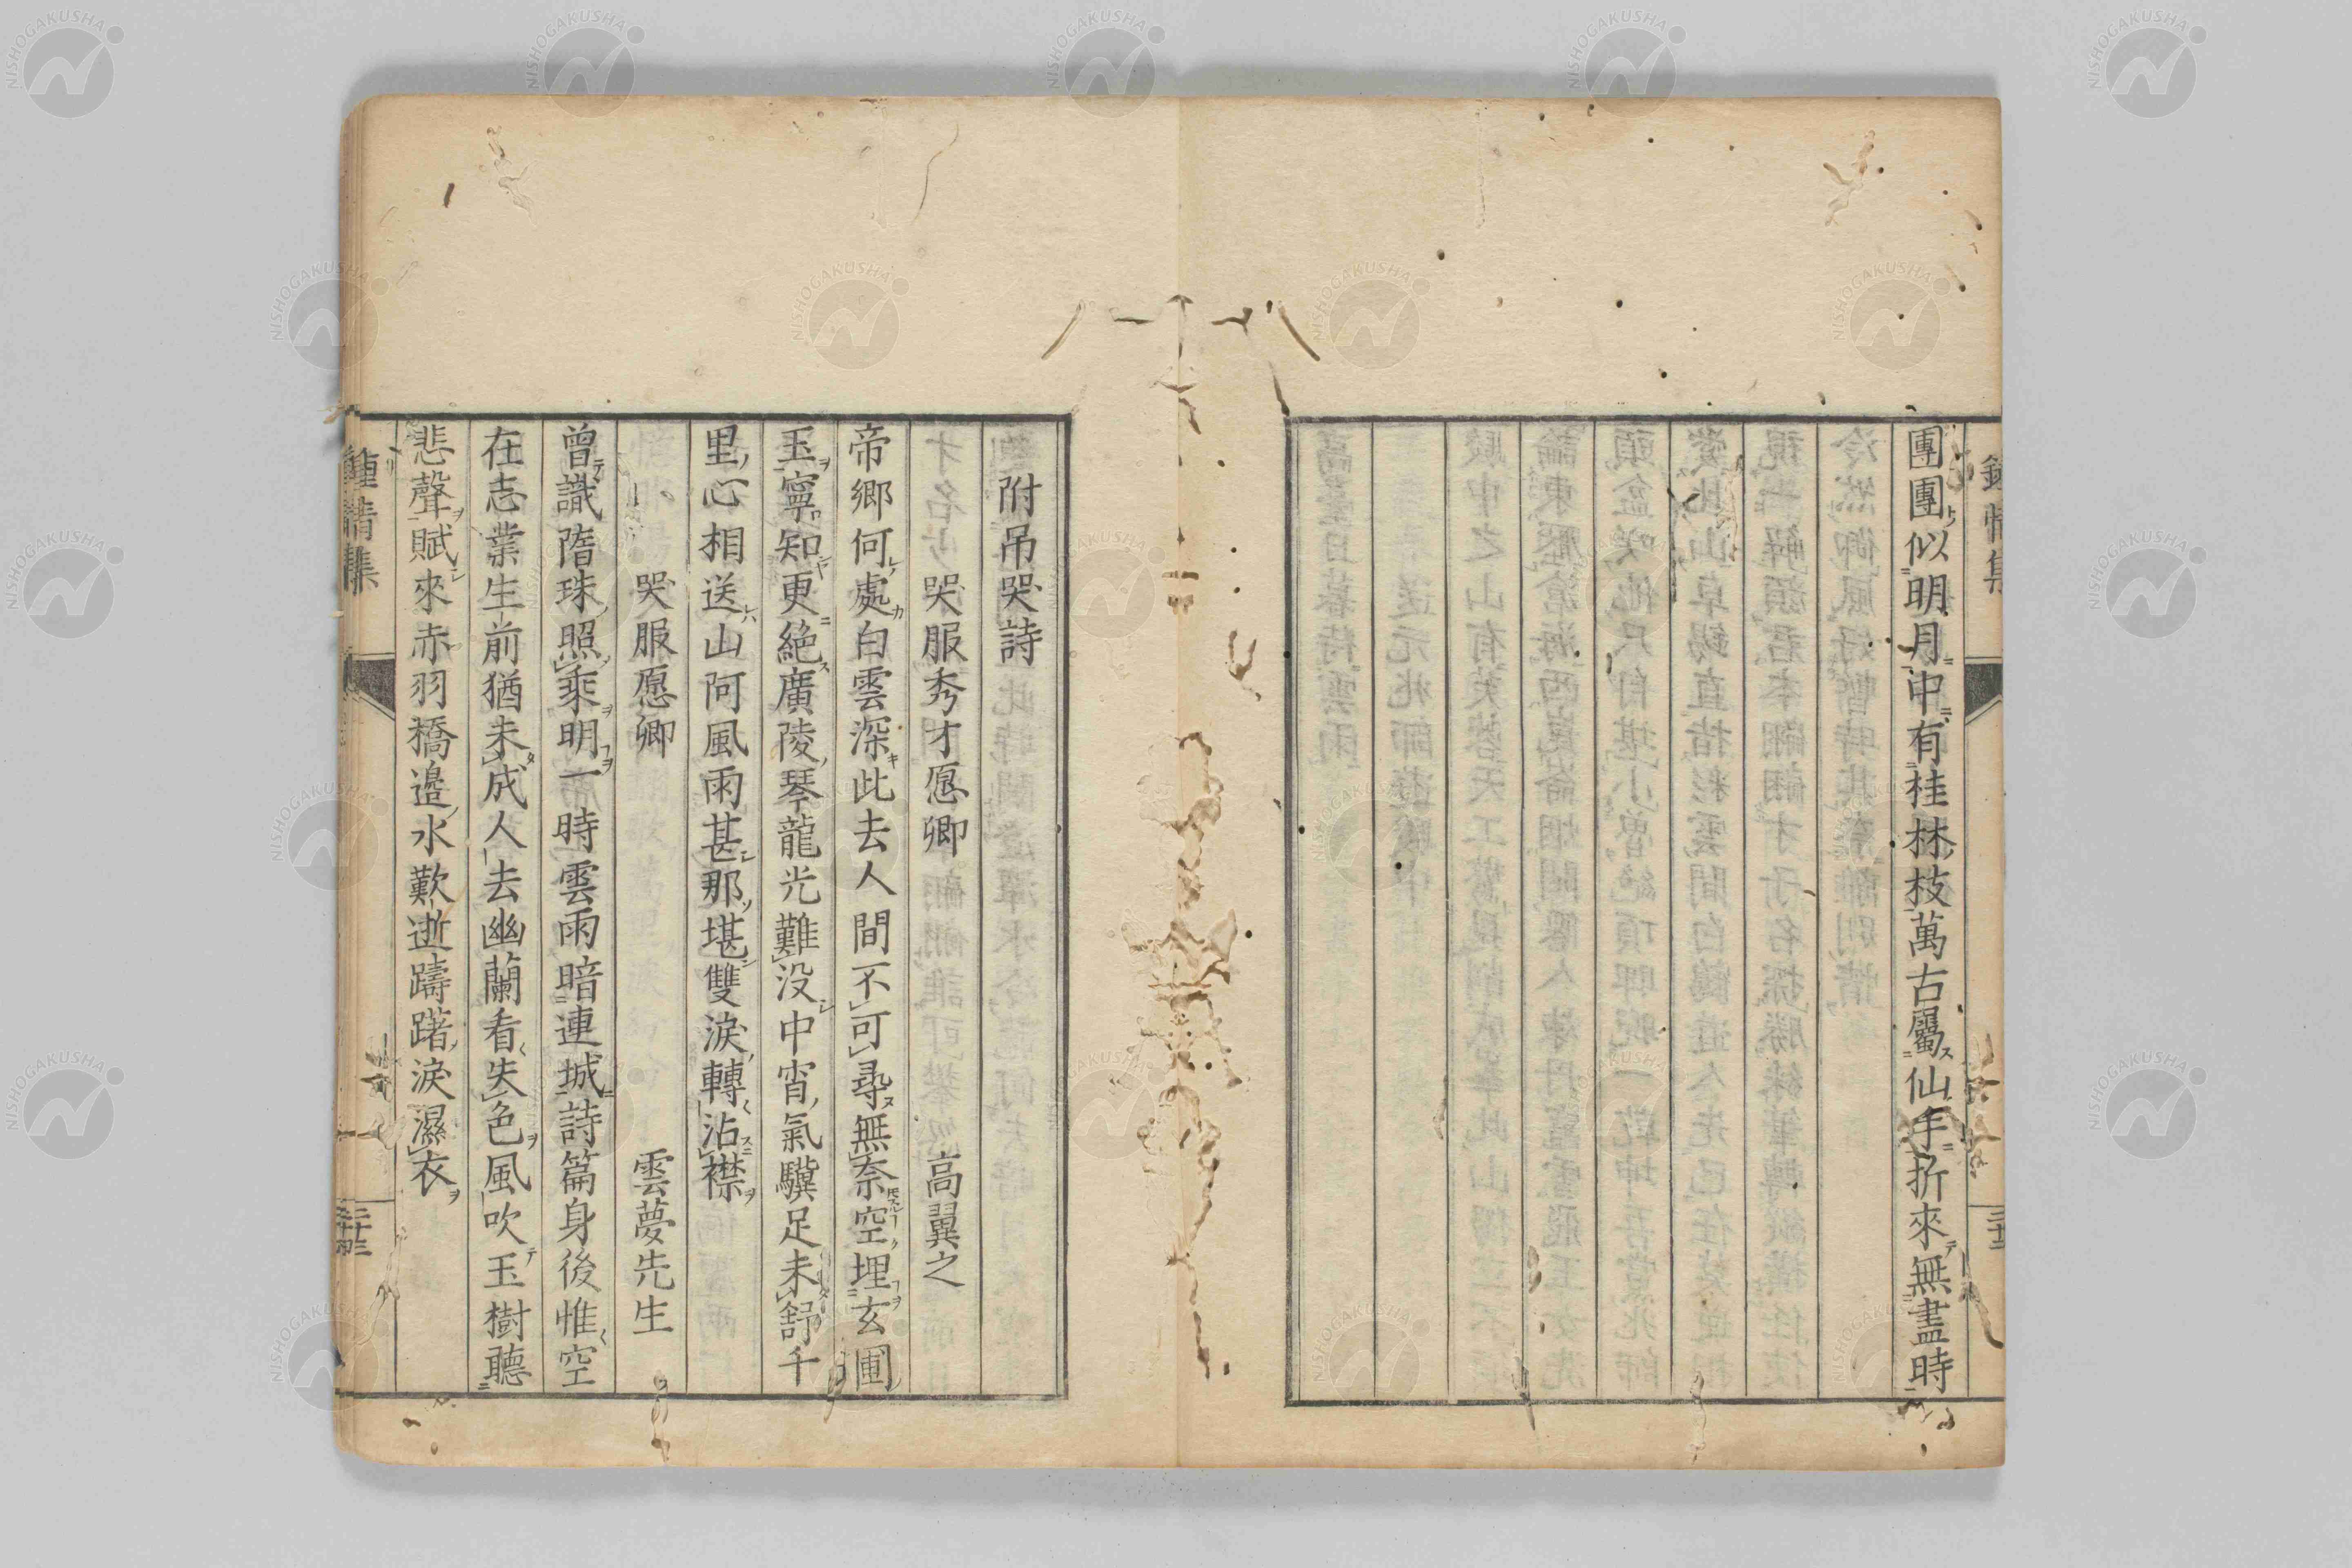 團團似明月中有桂林枝萬古屬仙手折來無盡時
附吊哭詩
哭服秀才愿卿　高翼之
帝鄉何處白雲深此去人間不可尋無奈空埋玄圃
玉寧知更絕廣陵琴龍光難没中宵氣驥足未舒千
里心相送山阿風雨甚那堪雙淚轉沾襟
哭服愿卿　雲夢先生
曾識隋珠照乘明一時雲雨暗連城詩篇身後惟空
在志業生前猶未成人去幽蘭看失色風吹玉樹聽
悲聲賦來赤羽橋邉水歎逝躊躇淚濕衣
鍾情集